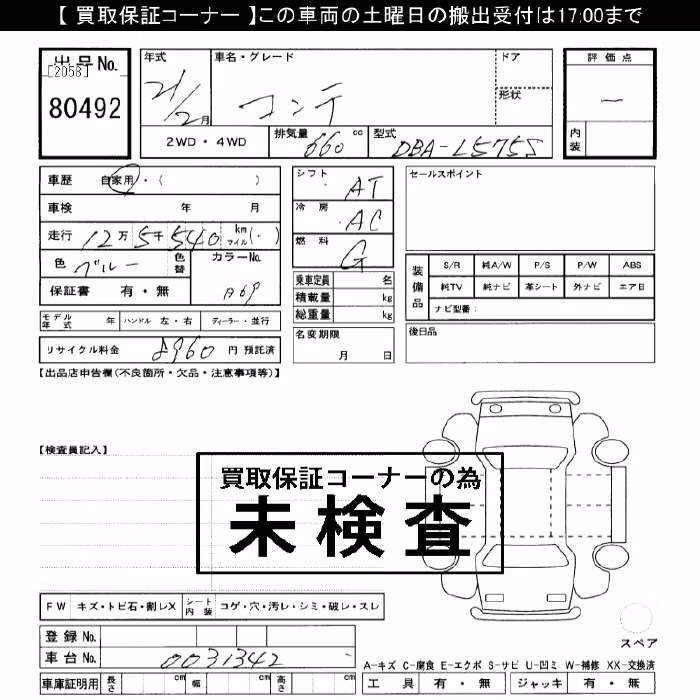 【 買取保証コーナー 】この車両の土曜日の搬出受付は17:00まで
出品No.
[2058]
80492
年式
21/2月
車名・グレード
コンテ
ドア
形状
評価点
—
内装
2WD・4WD
排気量 660 cc
型式 DBA-L575S
車歴 自家用・( )
車検 年 月
走行 12万5千540 km マイル(・)
色 ブルー
色替
カラーNo.
保証書 有・無
モデル年式 年 ハンドル 左・右 ディーラー・並行
リサイクル料金 8960 円 預託済
シフト AT
冷房 AC
燃料 G
乗車定員 名
積載量 kg
総重量 kg
名変期限
月 日
セールスポイント
装備品
S/R 純A/W P/S P/W ABS
純TV 純ナビ 革シート 外ナビ エアB
ナビ型番:
後日品
【出品店申告欄(不良箇所・欠品・注意事項等)】
【検査員記入】
買取保証コーナーの為
未検査
FW キズ・トビ石・割レX シート内装 コゲ・穴・汚レ・シミ・破レ・スレ
登録No.
車台No. 0031342
車庫証明用 長さ cm 幅 cm 高さ cm
スペア
A-キズ C-腐食 E-エクボ S-サビ U-凹ミ W-補修 XX-交換済
工具 有・無 ジャッキ 有・無